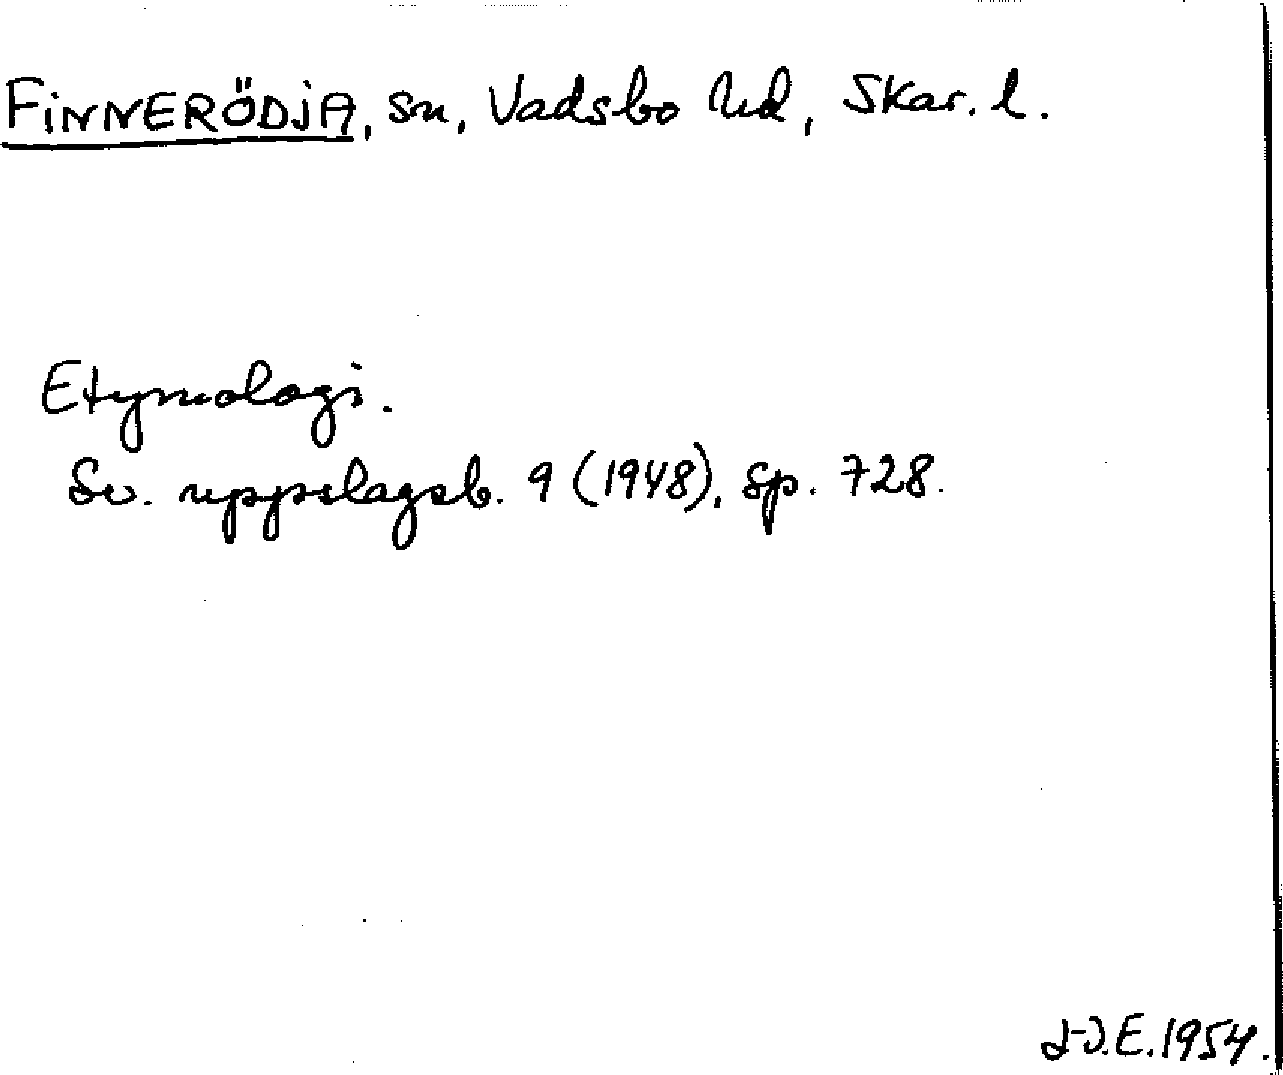 FINNERÖDJA, sn, Vadsbo hd, Skar. l.
Etymologi.
Sv. uppslagsb. 9 (1948), sp. 728.
J-Ö.E. 1954.